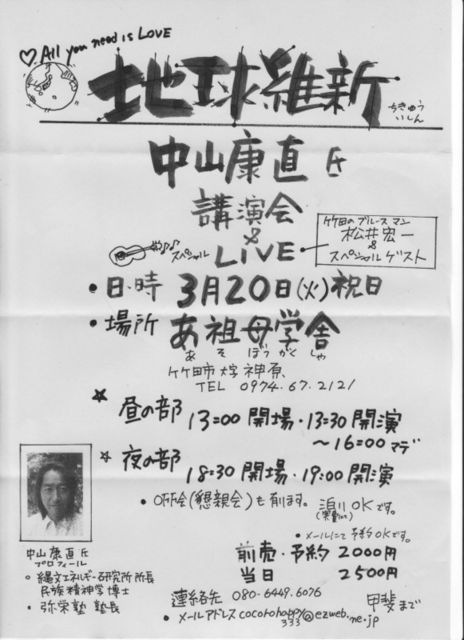 ♡ All you need is LOVE
地球維新
ちきゅう
いしん
中山康直氏
講演会
&
スペシャル LIVE
竹田のブルースマン
松井宏一
&
スペシャルゲスト
・日時 3月20日(火)祝日
・場所 あ祖母学舎
あ そ ぼう がく しゃ
竹田市大字神原
TEL 0974.67.2121
☆ 昼の部 13=00 開場・13=30 開演
～16=00マデ
☆ 夜の部
18=30 開場・19=00 開演
(懇親会)も
OKです。
・メールにて予約OKです。
前売・予約 2000円
当日 2500円
中山康直氏
プロフィール
○縄文エネルギー研究所所長
民族精神学博士
・弥栄塾 塾長
連絡先 080-6449.6076
甲斐まで
・メールアドレス cocorohappy333@ezweb.ne.jp